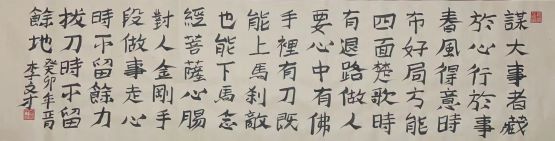 謀大事者藏
於心行於事
春風得意時
布好局方能
四面楚歌時
有退路做人
要心中有佛
手裡有刀既
能上馬刹敵
也能下馬念
經菩薩心腸
對人金剛手
段做事走心
時不留餘力
拔刀時不留
餘地
癸卯年晉
李文才